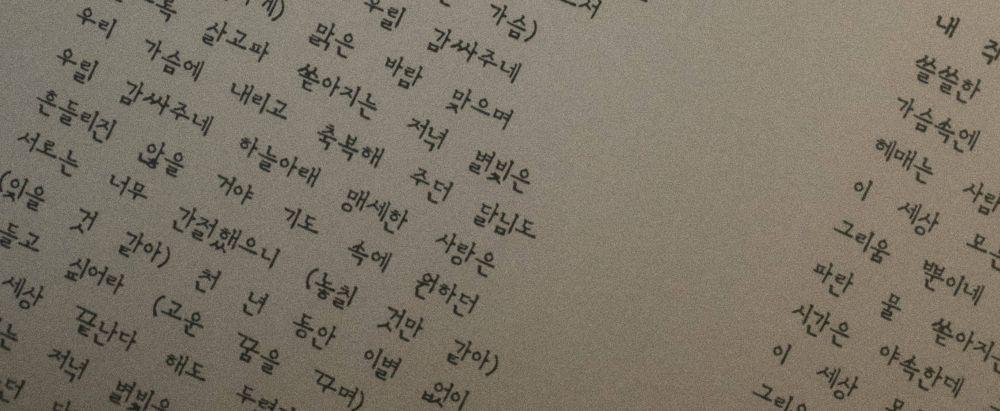 가슴)
우릴 감싸주네
맑은 바람 맞으며
살고파 쏟아지는 저녁 별빛은
우리 가슴에 내리고 축복해 주던 달님도
우릴 감싸주네 하늘아래 맹세한 사랑은
흔들리진 않을 거야 기도 속에 원하던
서로는 너무 간절했으니 (놓칠 것만 같아)
(잊을 것 같아) 천 년 동안 이별 없이
들고 싶어라 (고운 꿈을 꾸며)
세상 끝나다 해도
는 저녁 별빛은
던
내
쓸쓸한
가슴속에
헤매는
이 세상
그리움 뿐이네
파란 물 쏟아지는
시간은 야속한데
이 세상